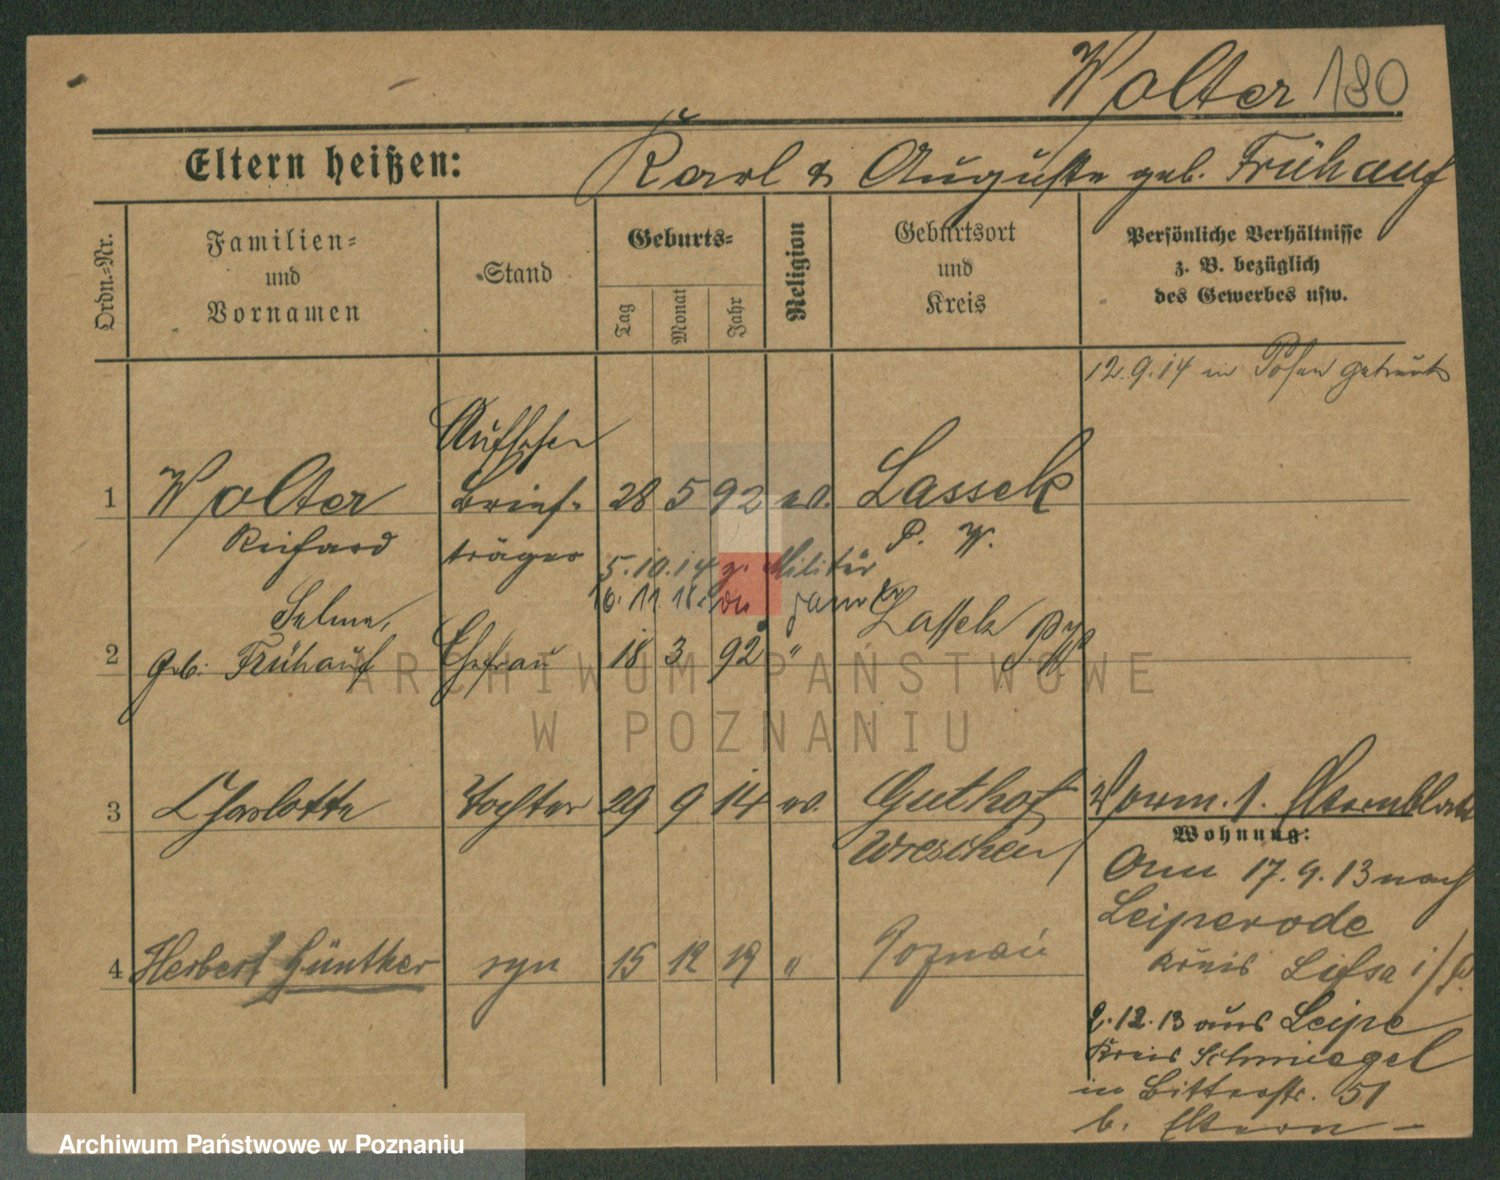 Wolter 180
Eltern heißen: Karl & Auguste geb. Frühauf
Ordn.-Nr.
Familien-
und
Vornamen
Stand
Geburts-
Tag
Monat
Jahr
Religion
Geburtsort
und
Kreis
Persönliche Verhältnisse
z. B. bezüglich
des Gewerbes usw.
12.9.14 in Posen getraut
Aufseher
1 Wolter Brief- 28 5 92 ev. Lassek
Richard träger P. W.
5.10.14 z. Militär
16.11.18
Selma,
2 geb. Frühauf Ehefrau 18 3 92 " Lassek
ARCHIWUM PAŃSTWOWE
W POZNANIU
3 Charlotte Tochter 29 9 14 ev. Guthof
Wreschen
Vorm. 1. Elternblatt
Wohnung:
17.9.13 nach
Leiperode
Kreis Lissa i/P.
4 Herbert Günther syn 15 12 19 " Poznań
2.12.13 aus Leipe
Kreis Schmiegel
in Bitterstr. 51
b. Eltern
Archiwum Państwowe w Poznaniu